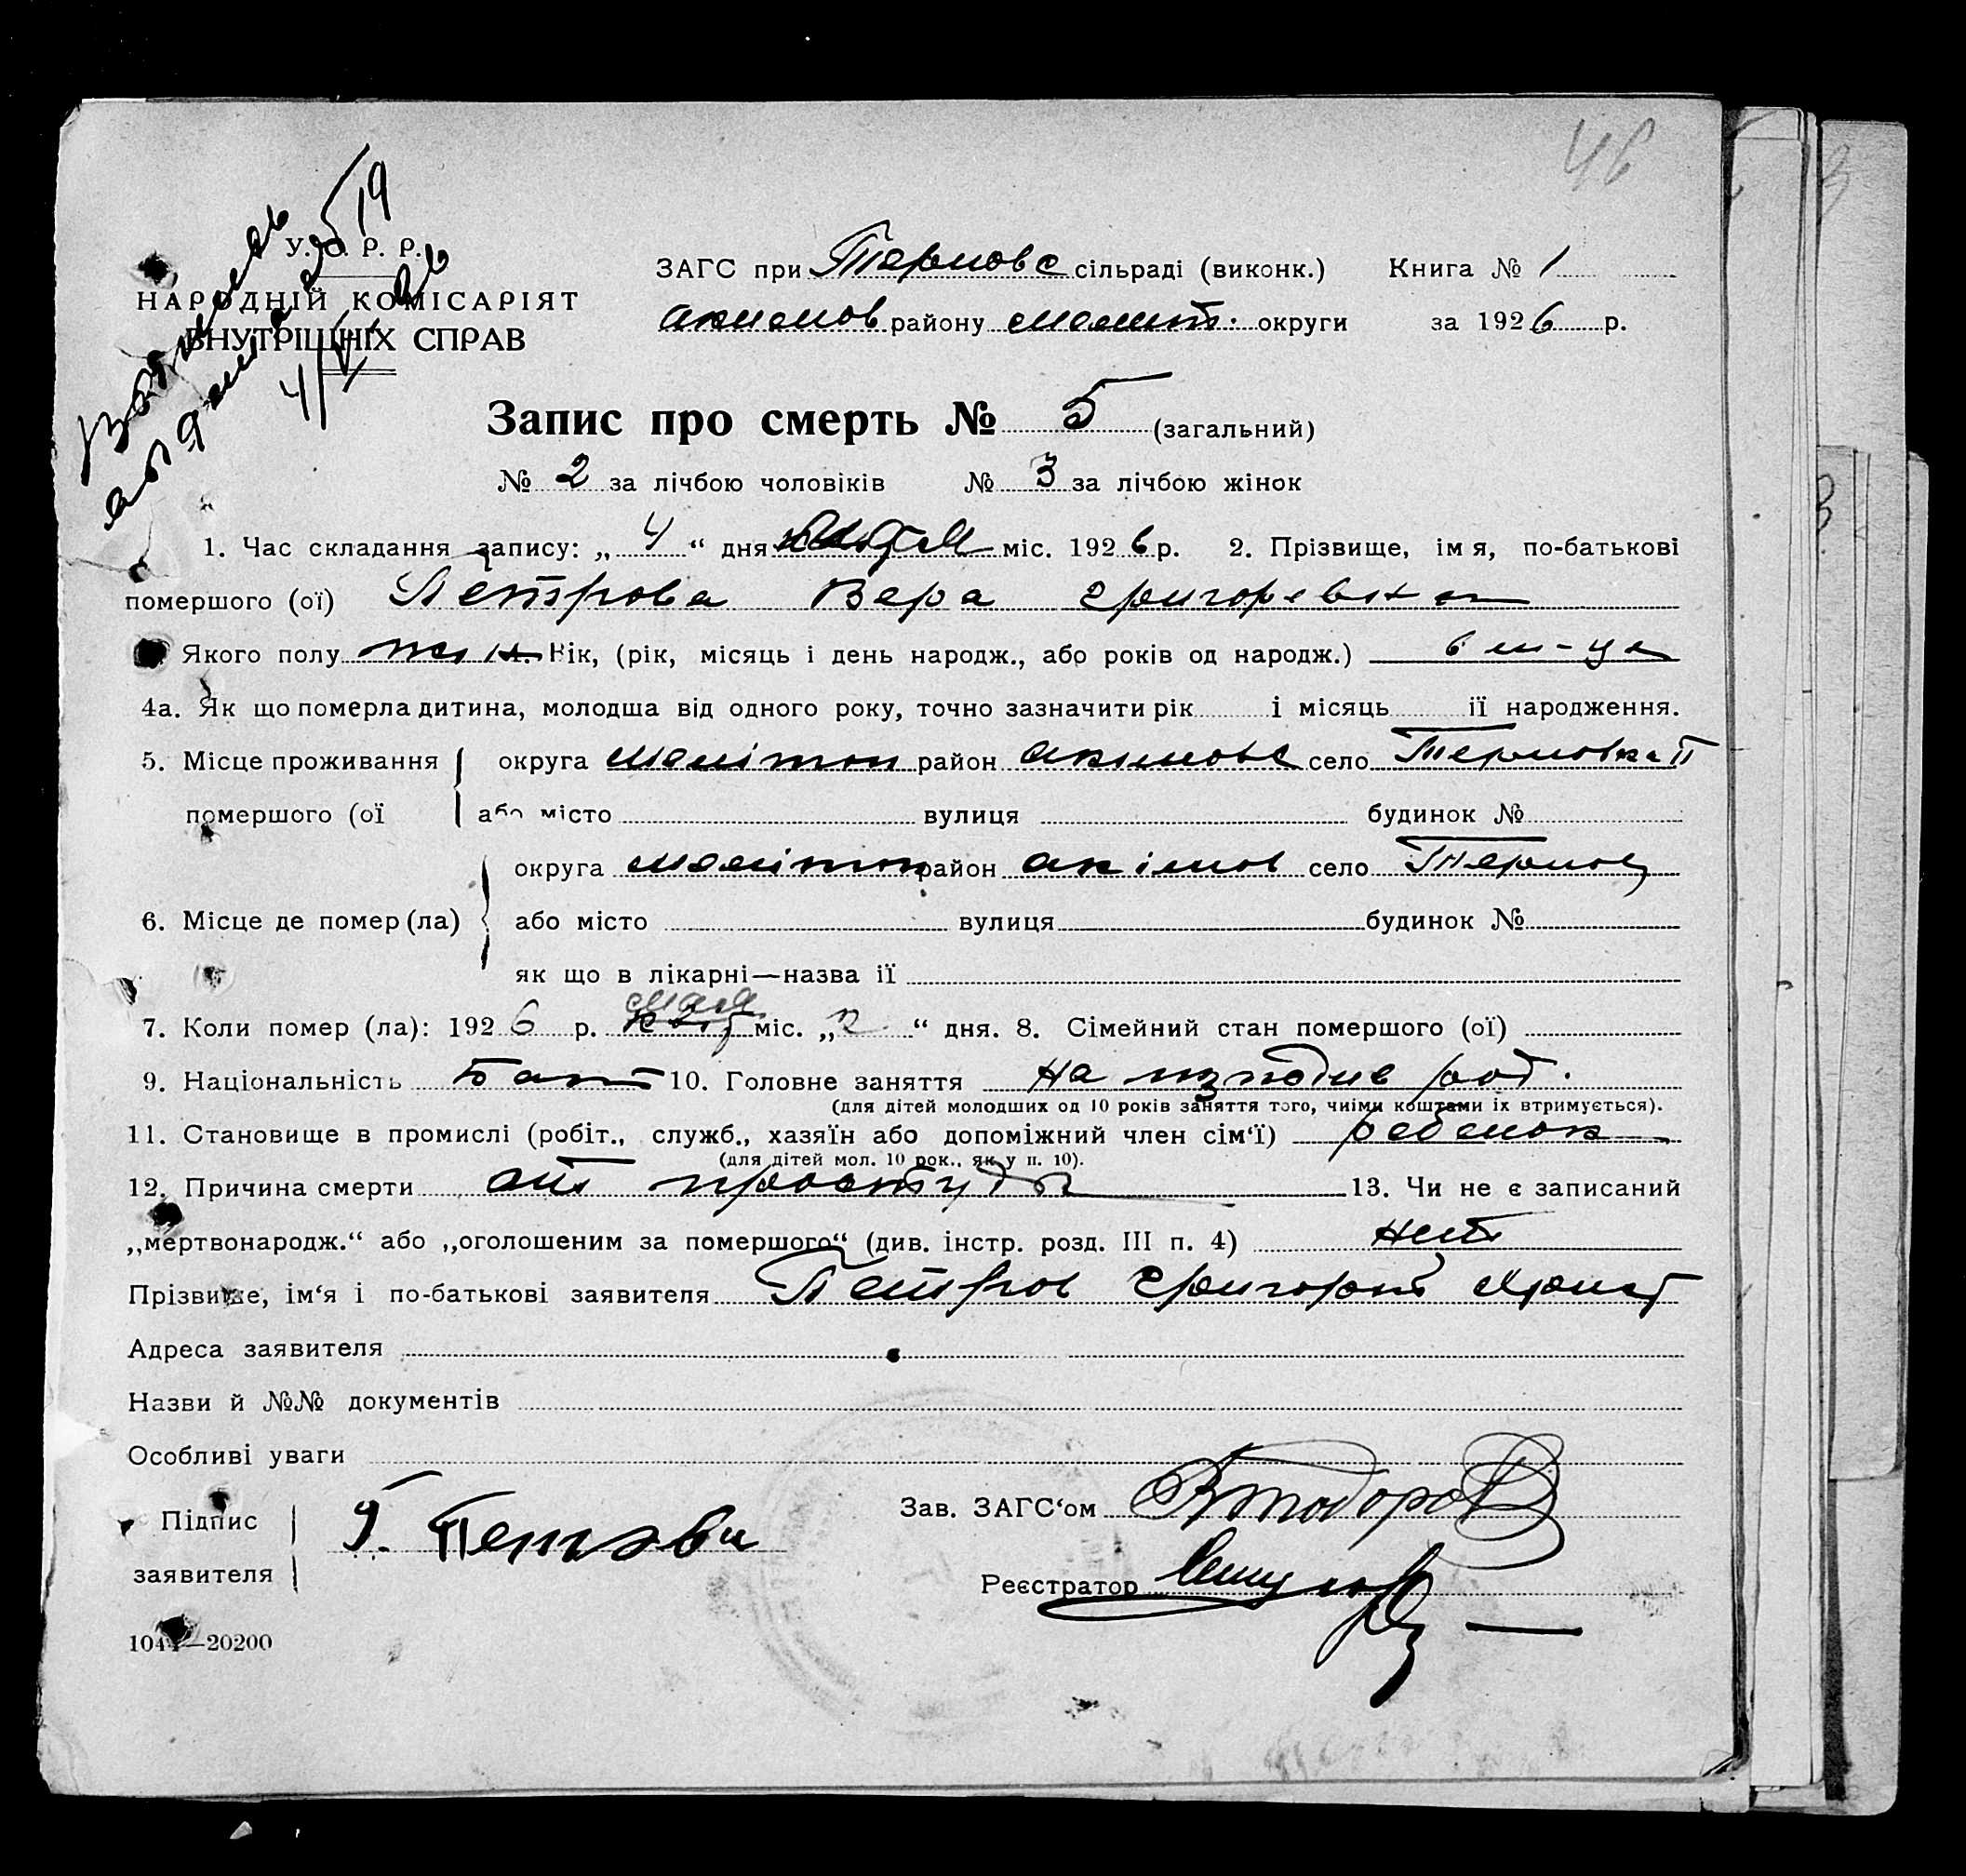 46
У. С. Р. Р.
НАРОДНІЙ КОМІСАРІЯТ
ВНУТРІШНІХ СПРАВ
ЗАГС при Тернове сільраді (виконк.) Книга № 1
Акимов району Мелит. округи за 1926 р.
Запис про смерть № 5 (загальний)
№ 2 за лічбою чоловіків № 3 за лічбою жінок
1. Час складання запису: „ 4 “ дня мая міс. 1926 р. 2. Прізвище, імя, по-батькові
помершого (ої) Петрова Вера Григоревна
Якого полу жен. Вік, (рік, місяць і день народж., або років од народж.) 6 м-ця
4а. Як що померла дитина, молодша від одного року, точно зазначити рік і місяць її народження.
5. Місце проживання округа Мелітоп район Акімове село Терновка II
помершого (ої або місто вулиця будинок №
округа Мелітоп район Акімов село Тернов
6. Місце де помер (ла) або місто вулиця будинок №
як що в лікарні—назва її
7. Коли помер (ла): 1926 р. мая міс. „ “ дня. 8. Сімейний стан помершого (ої)
9. Національність Болг 10. Головне заняття На
(для дітей молодших од 10 років заняття того, чиїми коштами їх втримується).
11. Становище в промислі (робіт., служб., хазяїн або допоміжний член сім‘ї) ребенок
(для дітей мол. 10 рок., як у п. 10).
12. Причина смерти от простуды 13. Чи не є записаний
„мертвонародж.“ або „оголошеним за помершого“ (див. інстр. розд. III п. 4) нет
Прізвище, ім‘я і по-батькові заявителя Петров Григорий Христ
Адреса заявителя
Назви й №№ документів
Особливі уваги
Підпис Г. Петров Зав. ЗАГС‘ом Тодоров
заявителя Реєстратор
104—20200